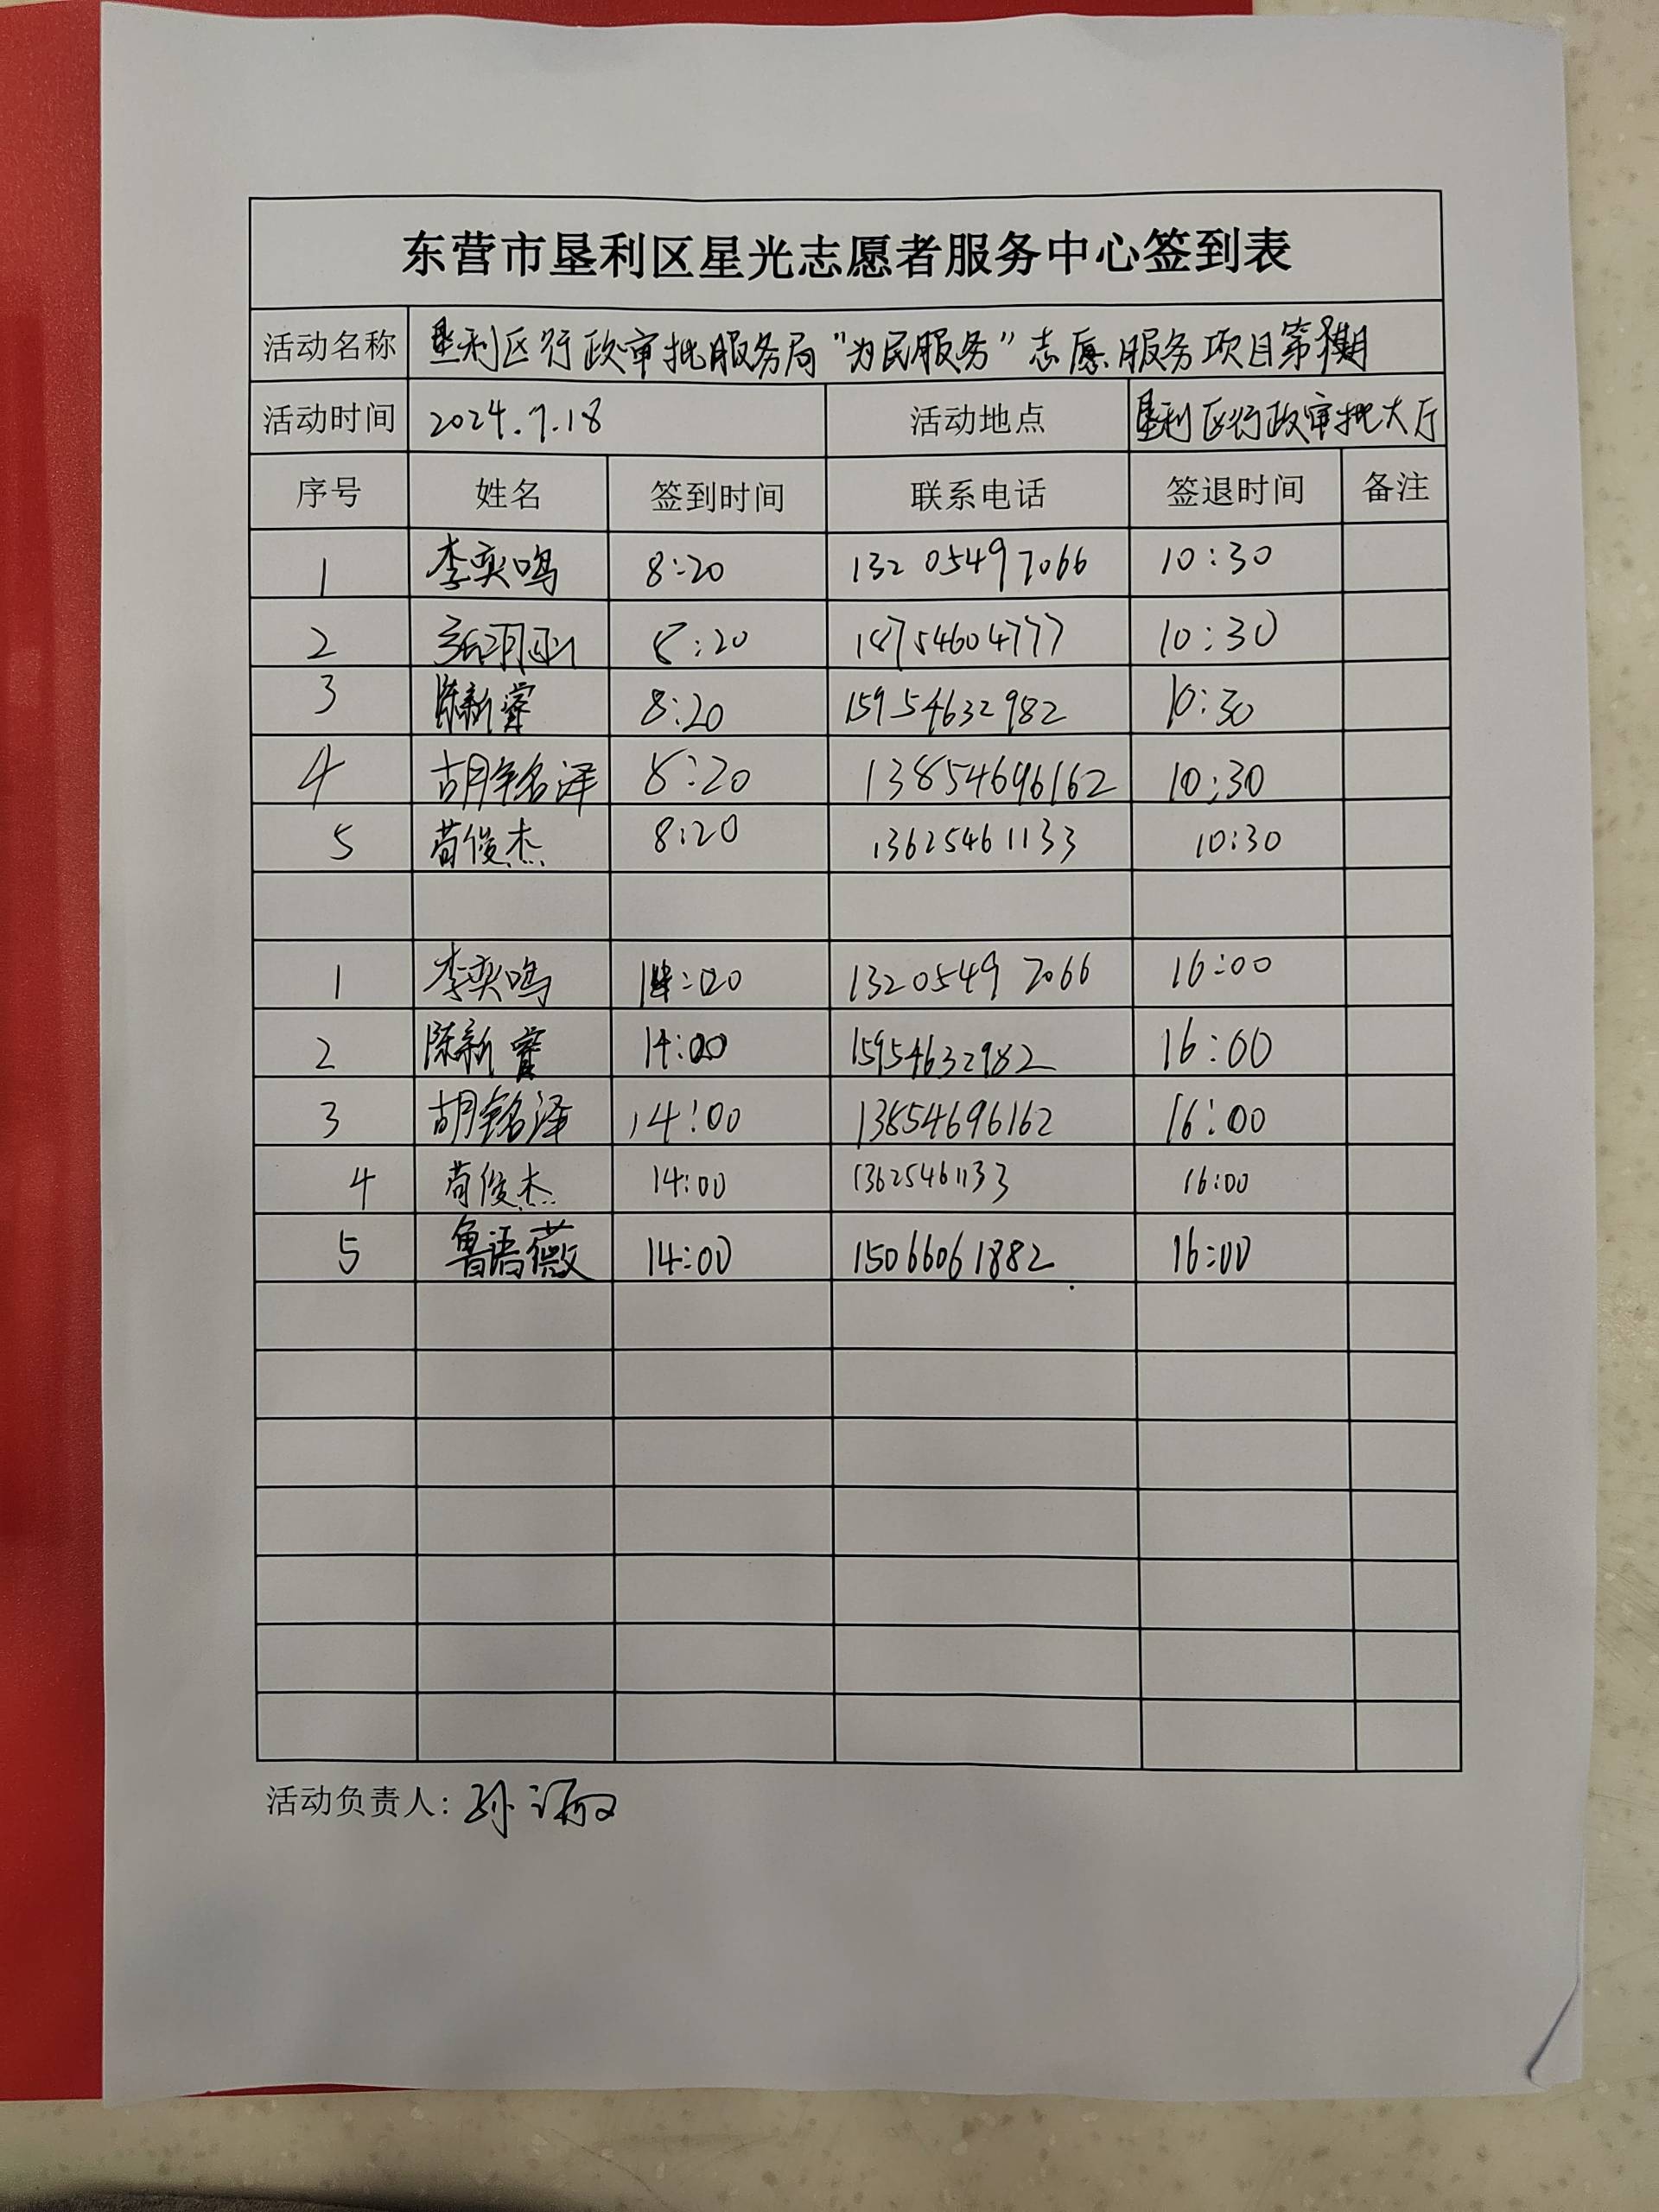 东营市垦利区星光志愿者服务中心签到表
活动名称 垦利区行政审批服务局“为民服务”志愿服务项目第期
活动时间 2024.7.18 活动地点 垦利区行政审批大厅
序号 姓名 签到时间 联系电话 签退时间 备注
1 李奕鸣 8:20 13205497066 10:30
2 8:20 18754604777 10:30
3 陈新睿 8:20 15954632982 10:30
4 胡铭泽 8:20 13854696162 10:30
5 苟俊杰 8:20 13625461133 10:30
1 李奕鸣 14:00 13205497066 16:00
2 陈新睿 14:00 15954632982 16:00
3 胡铭泽 14:00 13854696162 16:00
4 苟俊杰 14:00 13625461133 16:00
5 鲁语薇 14:00 15066061882 16:00
活动负责人：孙